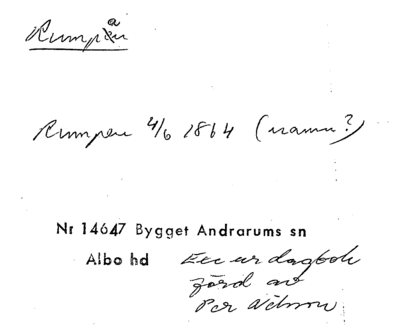 a
Rumpen
Rumpen 4/6 1864 (namn?)
Nr 14647 Bygget Andrarums sn
Albo hd Exc ur dagbok
förd av
Per Nilsson